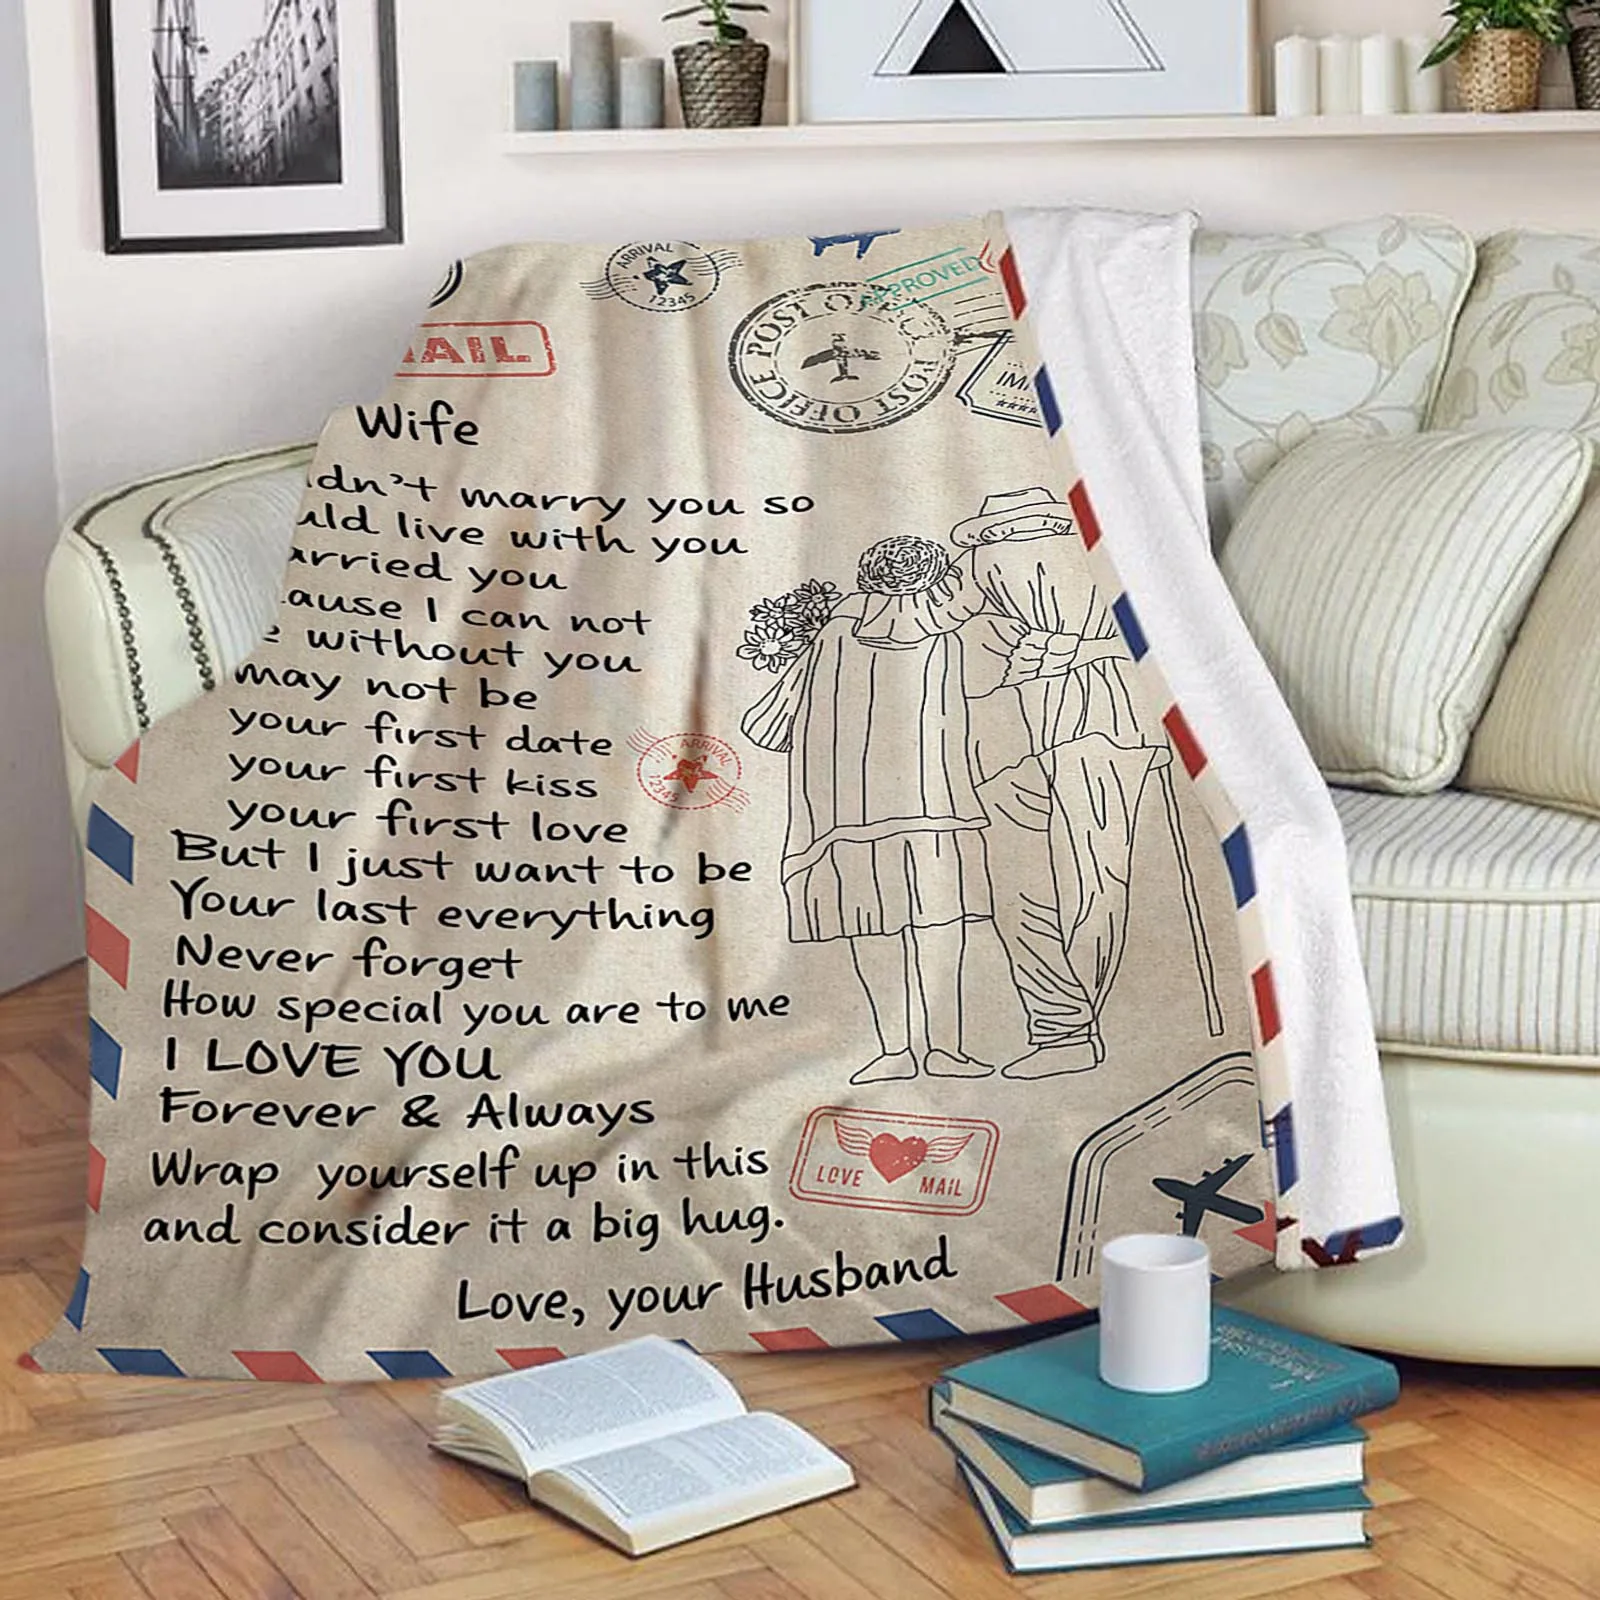 ARRIVAL
12345
APPROVED
POST OFFICE POST OFFICE
Wife
marry you so
live with you
you
I can not
without you
may not be
your first date
your first kiss
your first love
ARRIVAL
12345
But I just want to be
Your last everything
Never forget
How special you are to me
I LOVE YOU
Forever & Always
Wrap yourself up in this
and consider it a big hug.
LOVE MAIL
Love, your Husband